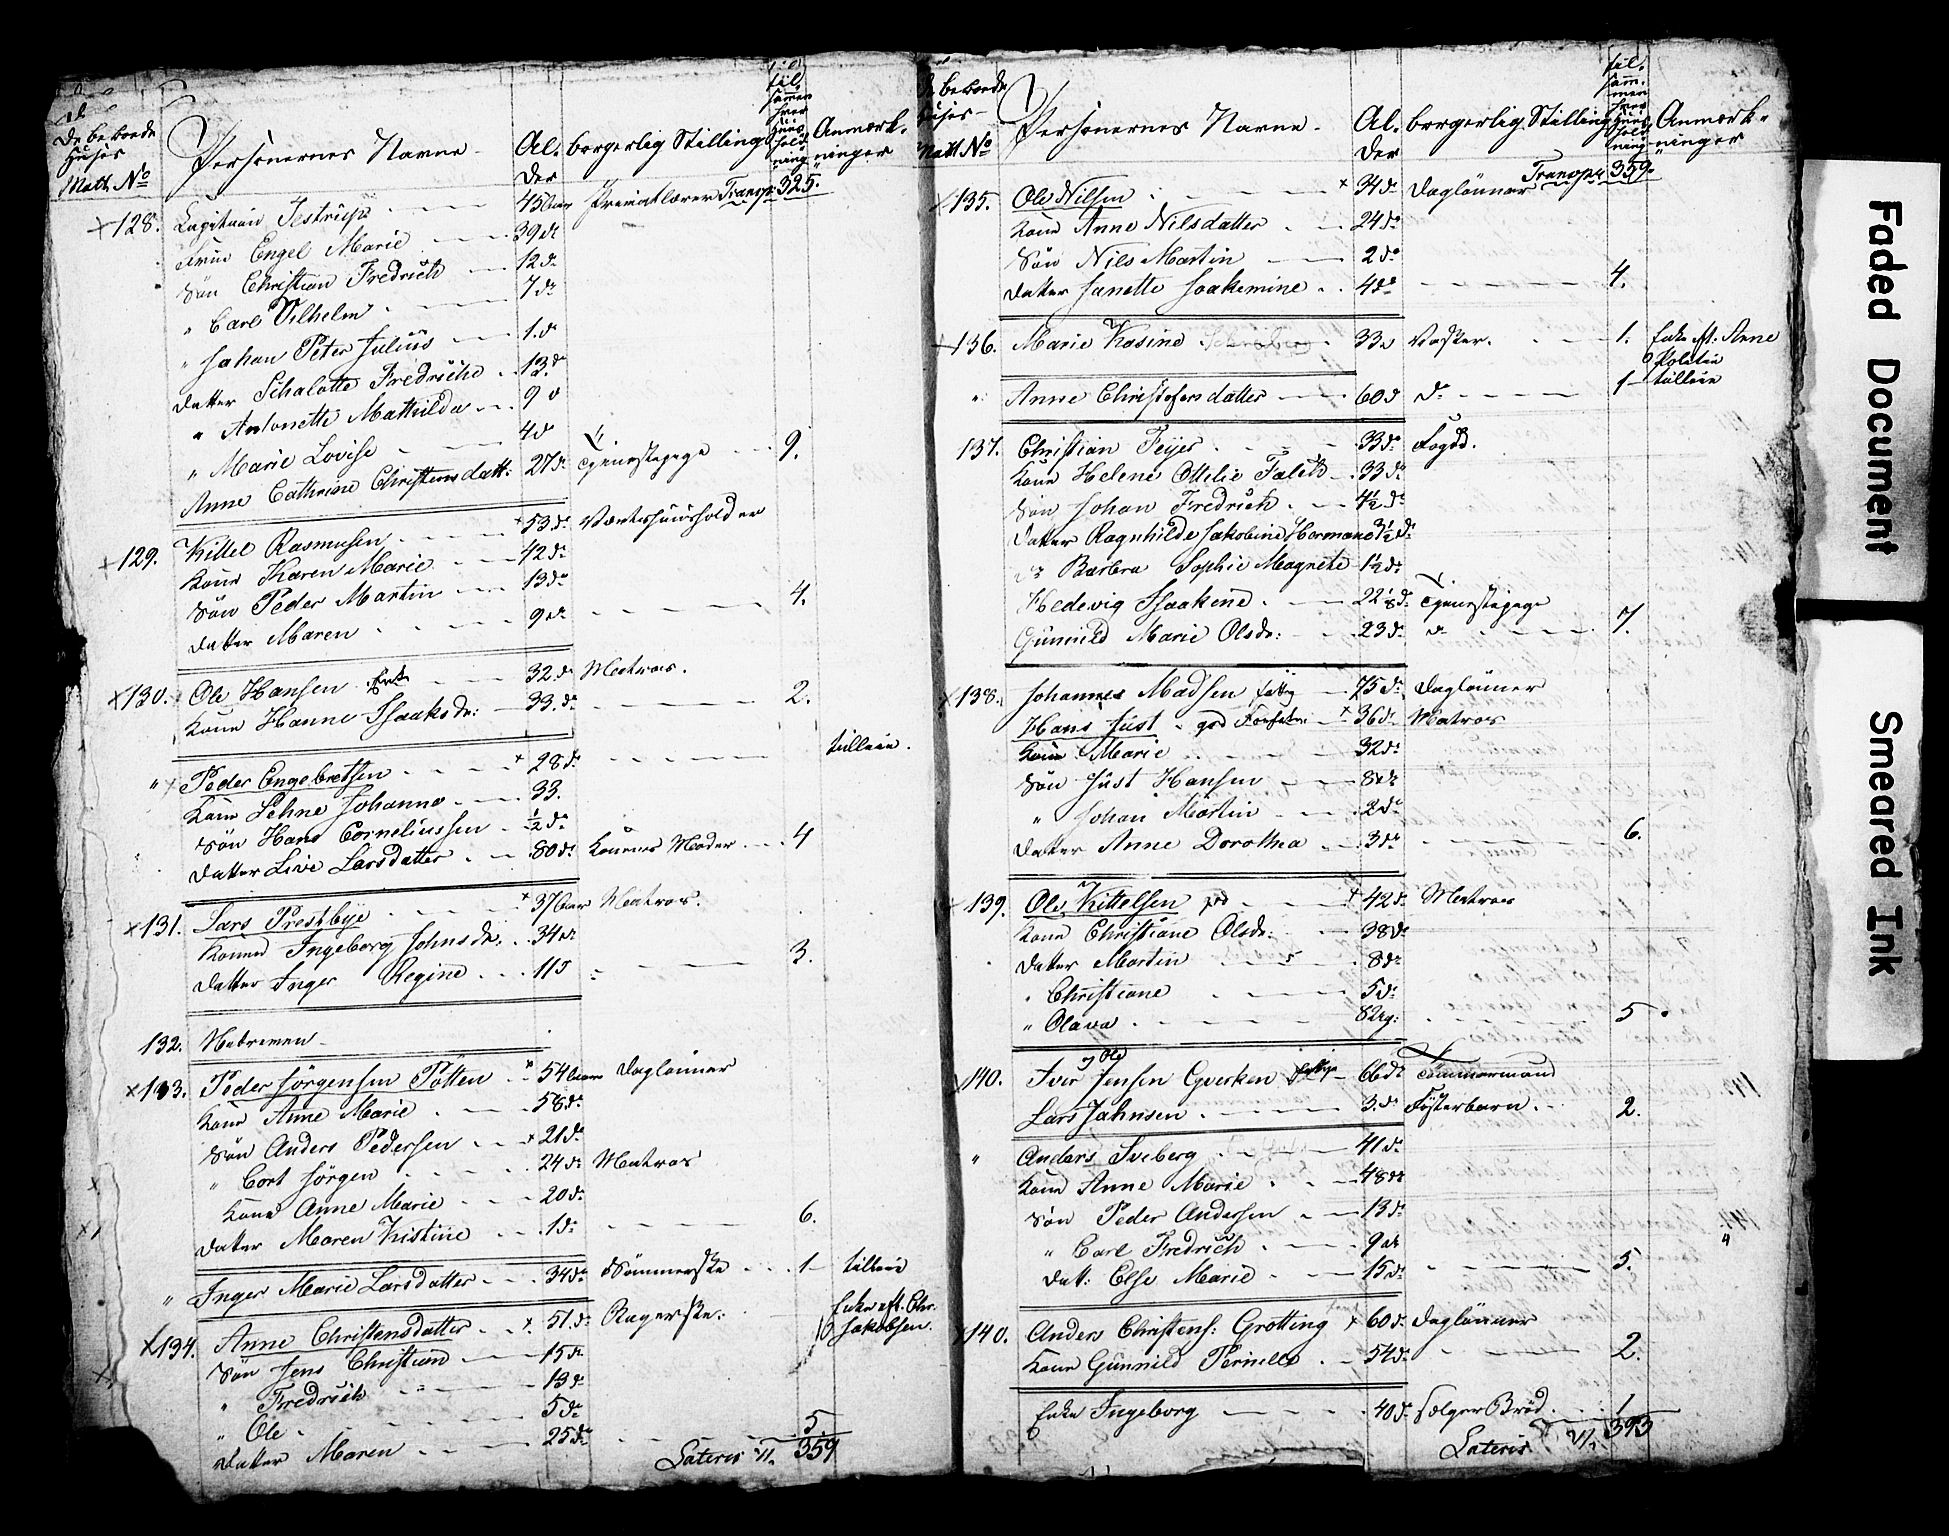 De beboede Huses Matk No
Personernes Navne
Alder
borgerlig Stilling
til sammen hver Huusholdning
Anmærkninger
Transp: 325.
128. Capitain Testrup 45 Aar Privatlærer
Frue Engel Marie 39 dt
Søn Christian Fredrich 12 d
" Carl Vilhelm 7 d
" Johan Peter Julius 1. d
Datter Schalotte Fredriche 13 d
" Antonette Mathilda 9 d
" Marie Lovise 4 d
Anne Cathrine Christensdatt: 27 d Tjenestepige 9.
129. Kittel Rasmusen 53 d Værtshuusholder
Kone Karen Marie 42 d
Søn Peder Martin 13 d
Datter Maren 9 d 4.
130. Ole Hansen 32 d Matros.
Kone Hanne Isaaksdr: 33. d 2.
" Peder Engebretsen 28 d tilleie.
Kone Lehne Johanne 33.
Søn Hans Corneliussen ½ d
Datter Live Larsdatter 80 d Konens Moder 4
131. Lars Prestbye 37 Aar Matros.
Konen Ingeborg Johnsdr. 34 d
Datter Inger Regine 11 d 3.
132. Nebremen
133. Peder Jørgensen Potten 54 Aar Daglønner
Kone Anne Marie 58 d
Søn Anders Pedersen 21 d
" Cort Jørgen 24 d Matros
Kone Anne Marie 20 d
Datter Maren Kistine 1 d 6.
" Inger Marie Larsdatter 34 d Sømmerske 1 tilleie
134. Anne Christensdatter 51. d Bagerske. Enke eft. Chr. Jakobsen.
Søn Jens Christian 15 d
" Fredrich 13 d
" Ole 5 d
Datter Maren 25 d 5
Lateris 359
De beboede Huses Matk No
Personernes Navne
Alder
borgerlig Stilling
til sammen hver Huusholdning
Anmærkninger
Transpt 359.
135. Ole Nilsen 34 d Daglønner
Kone Anne Nilsdatter 24 d
Søn Nils Martin 2 d
Datter Janette Joakimine 4 d 4.
136. Marie Kasine 33 d Vasker. 1. Enke eft. Arne Holstein
" Anne Christofersdatter 60 d d 1 tilleie
137. Christian Feyer 33 d Fogd.
Kone Helene Ottilie Falch 33 d
Søn Johan Fredrich 4½ d
Datter Ragnhilde Jakobine Hermane 3½ d
d Barbra Sophie Magrete 1½ d
Hedevig Isaakine 22 d Tjenestepige
Gunnild Marie Olsdr: 23 d d 7.
138. Johannes Madsen fattig 75 d Dagløner
Hans Just 36 d Matros
Kone Marie 32 d
Søn Just Hansen 8 d
" Johan Martin 2 d
Datter Anne Dorothea 3 d 6.
139. Ole Kittelsen 42 d Matros
Kone Christiane Olsdr: 38 d
Datter Martin 8 d
" Christiane 5 d
" Olava 8 Uger 5
140. Iver Jensen Qverken 66 d Tømmermand
Lars Jahnsen 3. d Fosterbarn. 2.
" Anders Sveberg 41 d
Kone Anne Marie 48 d
Søn Peder Andersen 13 d
" Carl Fredrich 9 d
Datt: Else Marie 15 d 5.
140. Anders Christens: Grotting 60 d Dagløner
Kone Gunnild Pernelle 54 d 2.
Enke Ingeborg 40 d sælger Brød 1
Lateris 393
Faded Document
Smeared Ink